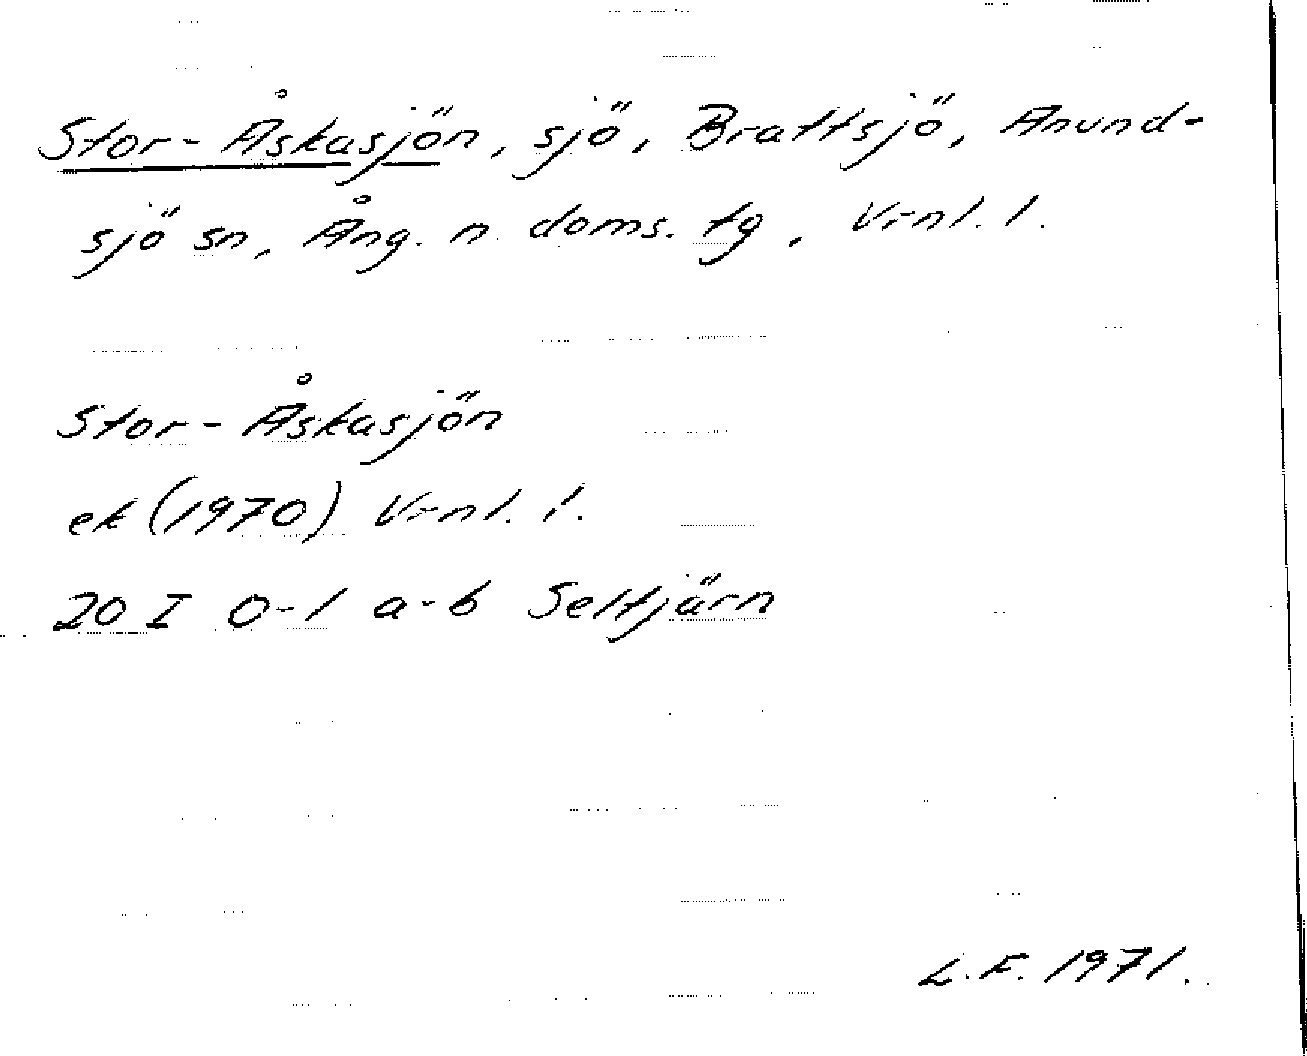 Stor-Åskasjön, sjö, Brattsjö, Anund-
sjö sn, Ång. n. doms. tg, Vrnl. l.
Stor-Åskasjön
ek (1970) Vrnl. l.
20 I 0-1 a-b Seltjärn
L.F. 1971.